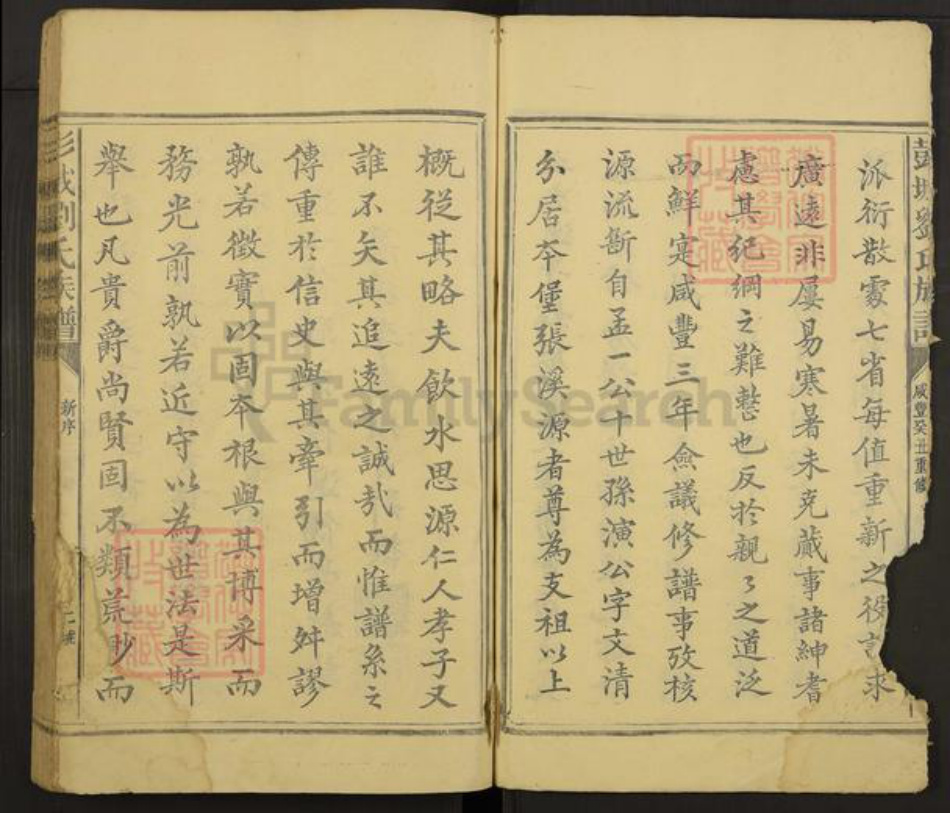 彭城劉氏族譜
咸豐癸丑重修
派衍散處七省每值重新之役
求
廣遠非屢易寒暑未克蕆事諸紳耆
慮其紀綱之難整也反於親〻之道泛
而鮮寔咸豐三年僉議修譜事攷核
源流斷自孟一公十世孫演公字文清
分居夲堡張溪源者尊為支祖以上
概從其略夫飲水思源仁人孝子又
誰不矢其追遠之誠㢤而惟譜系之
傳重於信史與其牽引而增舛謬
孰若徴實以固夲根與其博采而
務光前孰若近守以為世法是斯
舉也凡貴爵尚賢固不類荒眇而
彭城劉氏族譜
新序
FamilySearch